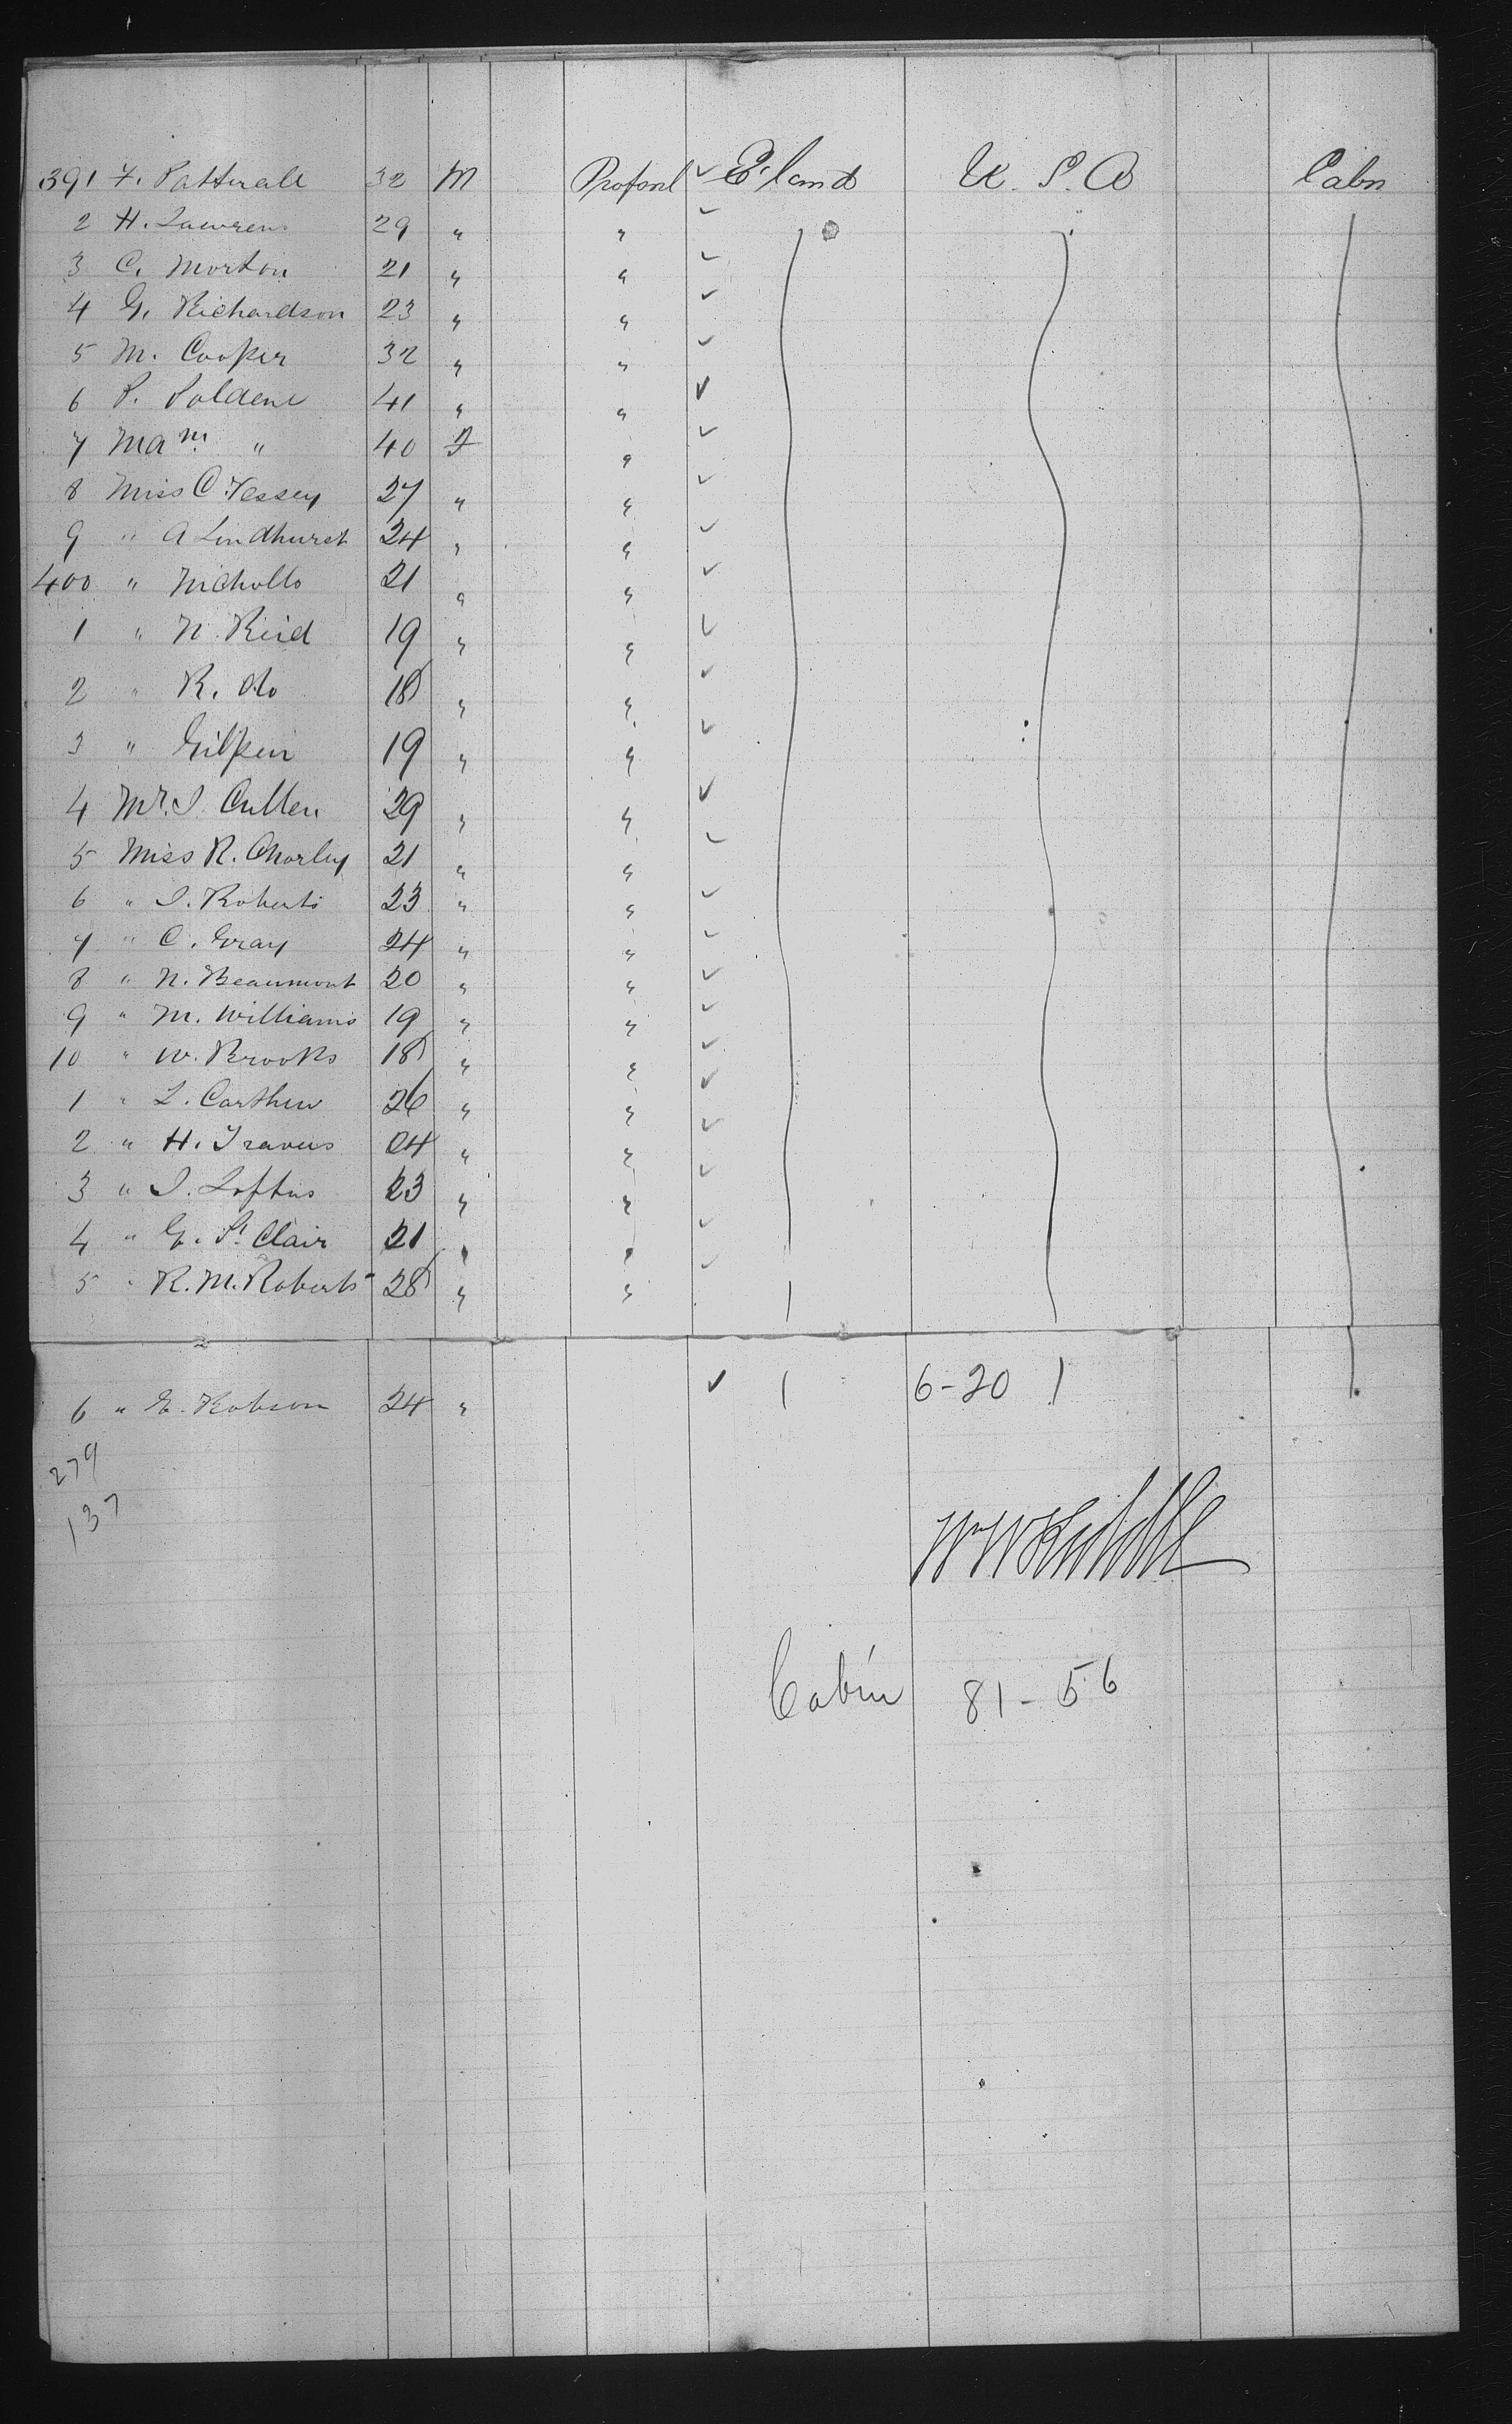 391 F. Patterall 32 M Profsnl ✓ E'land U. S. A Cabn
2 H. Lawrens 29 " " ✓
3 C. Morton 21 " " ✓
4 G. Richardson 23 " " ✓
5 M. Cooper 32 " " ✓
6 P. Soldene 41 " " ✓
7 Mam " 40 F " ✓
8 Miss C. Vessey 27 " " ✓
9 " A Lindhurst 24 " " ✓
400 " Nicholls 21 " " ✓
1 " N. Reid 19 " " ✓
2 " R. do 18 " " ✓
3 " Gilpin 19 " " ✓
4 Mr. J. Cullen 29 " " ✓
5 Miss R. Chorley 21 " " ✓
6 " J. Roberts 23 " " ✓
7 " C. Gray 24 " " ✓
8 " N. Beaumont 20 " " ✓
9 " M. Williams 19 " " ✓
10 " W. Brooks 18 " " ✓
1 " L. Carthew 26 " " ✓
2 " H. Travers 24 " " ✓
3 " J. Loftus 23 " " ✓
4 " G. St Clair 21 " " ✓
5 " R. M. Roberts 28 " " ✓
6 " E. Robson 24 " ✓ 6-20
279
137
Cabin 81-56